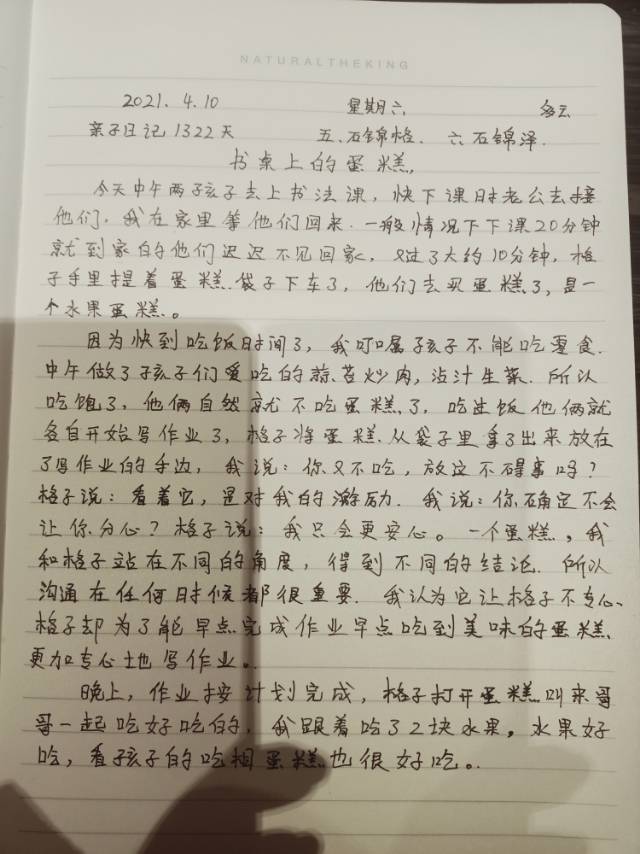 NATURALTHEKING
2021.4.10 星期六 多云
亲子日记1322天 五、石锦格. 六石锦泽.
书桌上的蛋糕.
今天中午两孩子去上书法课,快下课时老公去接
他们,我在家里等他们回来.一般情况下下课20分钟
就到家的他们迟迟不见回家,又过了大约10分钟,格
子手里提着蛋糕袋子下车了,他们去买蛋糕了,是一
个水果蛋糕。
因为快到吃饭时间了,我叮嘱孩子不能吃零食.
中午做了孩子们爱吃的蒜苔炒肉,沾汁生菜.所以
吃饱了,他俩自然就不吃蛋糕了,吃过饭他俩就
各自开始写作业了,格子将蛋糕从袋子里拿了出来放在
了写作业的手边,我说:你又不吃,放这不碍事吗?
格子说:看着它,是对我的激励.我说:你确定不会
让你分心?格子说:我只会更安心。一个蛋糕,我
和格子站在不同的角度,得到不同的结论.所以
沟通在任何时候都很重要.我认为它让格子不专心、
格子却为了能早点完成作业早点吃到美味的蛋糕
更加专心地写作业。
晚上,作业按计划完成,格子打开蛋糕叫来哥
哥一起吃好吃的,我跟着吃了2块水果,水果好
吃,看孩子的吃相蛋糕也很好吃。